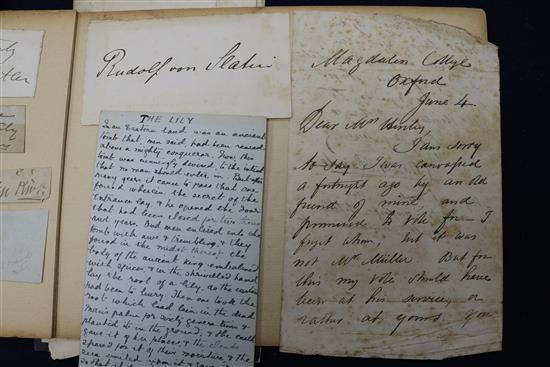 Rudolf von Slatin
THE LILY
In an Eastern land was an ancient
tomb that, men said, had been reared
above a mighty conqueror. Now, this
tomb was cunningly devised, to the intent
that no man should enter in. But after
many years it came to pass that one
found wherein the secret of the
Entrance lay, & he opened the Door
that had been closed for two thous
and years. And men entered into the
tomb with awe & trembling, & they
found in the midst thereof the
body of the ancient king embalmed
with spices, & in the shrivelled hand
lay the root of a lily, as the custom
had been to bury. Then one took the
root which had lain in the dead
Man's palm for sixty generations &
planted it in the ground; & the earth
gave it her place, & the clouds
spared for it of their moisture, & the
Magdalen College
Oxford
June 4.
Dear Mrs
I am sorry
to say I was canvassed
a fortnight ago by an old
friend of mine, and
promised to vote for – I
forget whom, but it was
not Mr Müller But for
this my vote should have
been at his service, or
rather at yours. Your